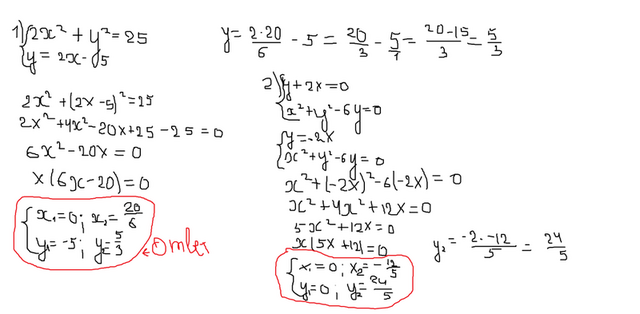 1) { 2x² + y² = 25
{ y = 2x - 5
2x² + (2x - 5)² = 25
2x² + 4x² - 20x + 25 - 25 = 0
6x² - 20x = 0
x(6x - 20) = 0
{ x₁ = 0 ; x₂ = 20/6
{ y₁ = -5 ; y₂ = 5/3
y = 2·20/6 - 5 = 20/3 - 5/1 = 20-15/3 = 5/3
2) { y + 2x = 0
{ x² + y² - 6y = 0
{ y = -2x
{ x² + y² - 6y = 0
x² + (-2x)² - 6(-2x) = 0
x² + 4x² + 12x = 0
5x² + 12x = 0
x(5x + 12) = 0
{ x₁ = 0 ; x₂ = -12/5
{ y₁ = 0 ; y₂ = 24/5
y₂ = -2·-12/5 = 24/5